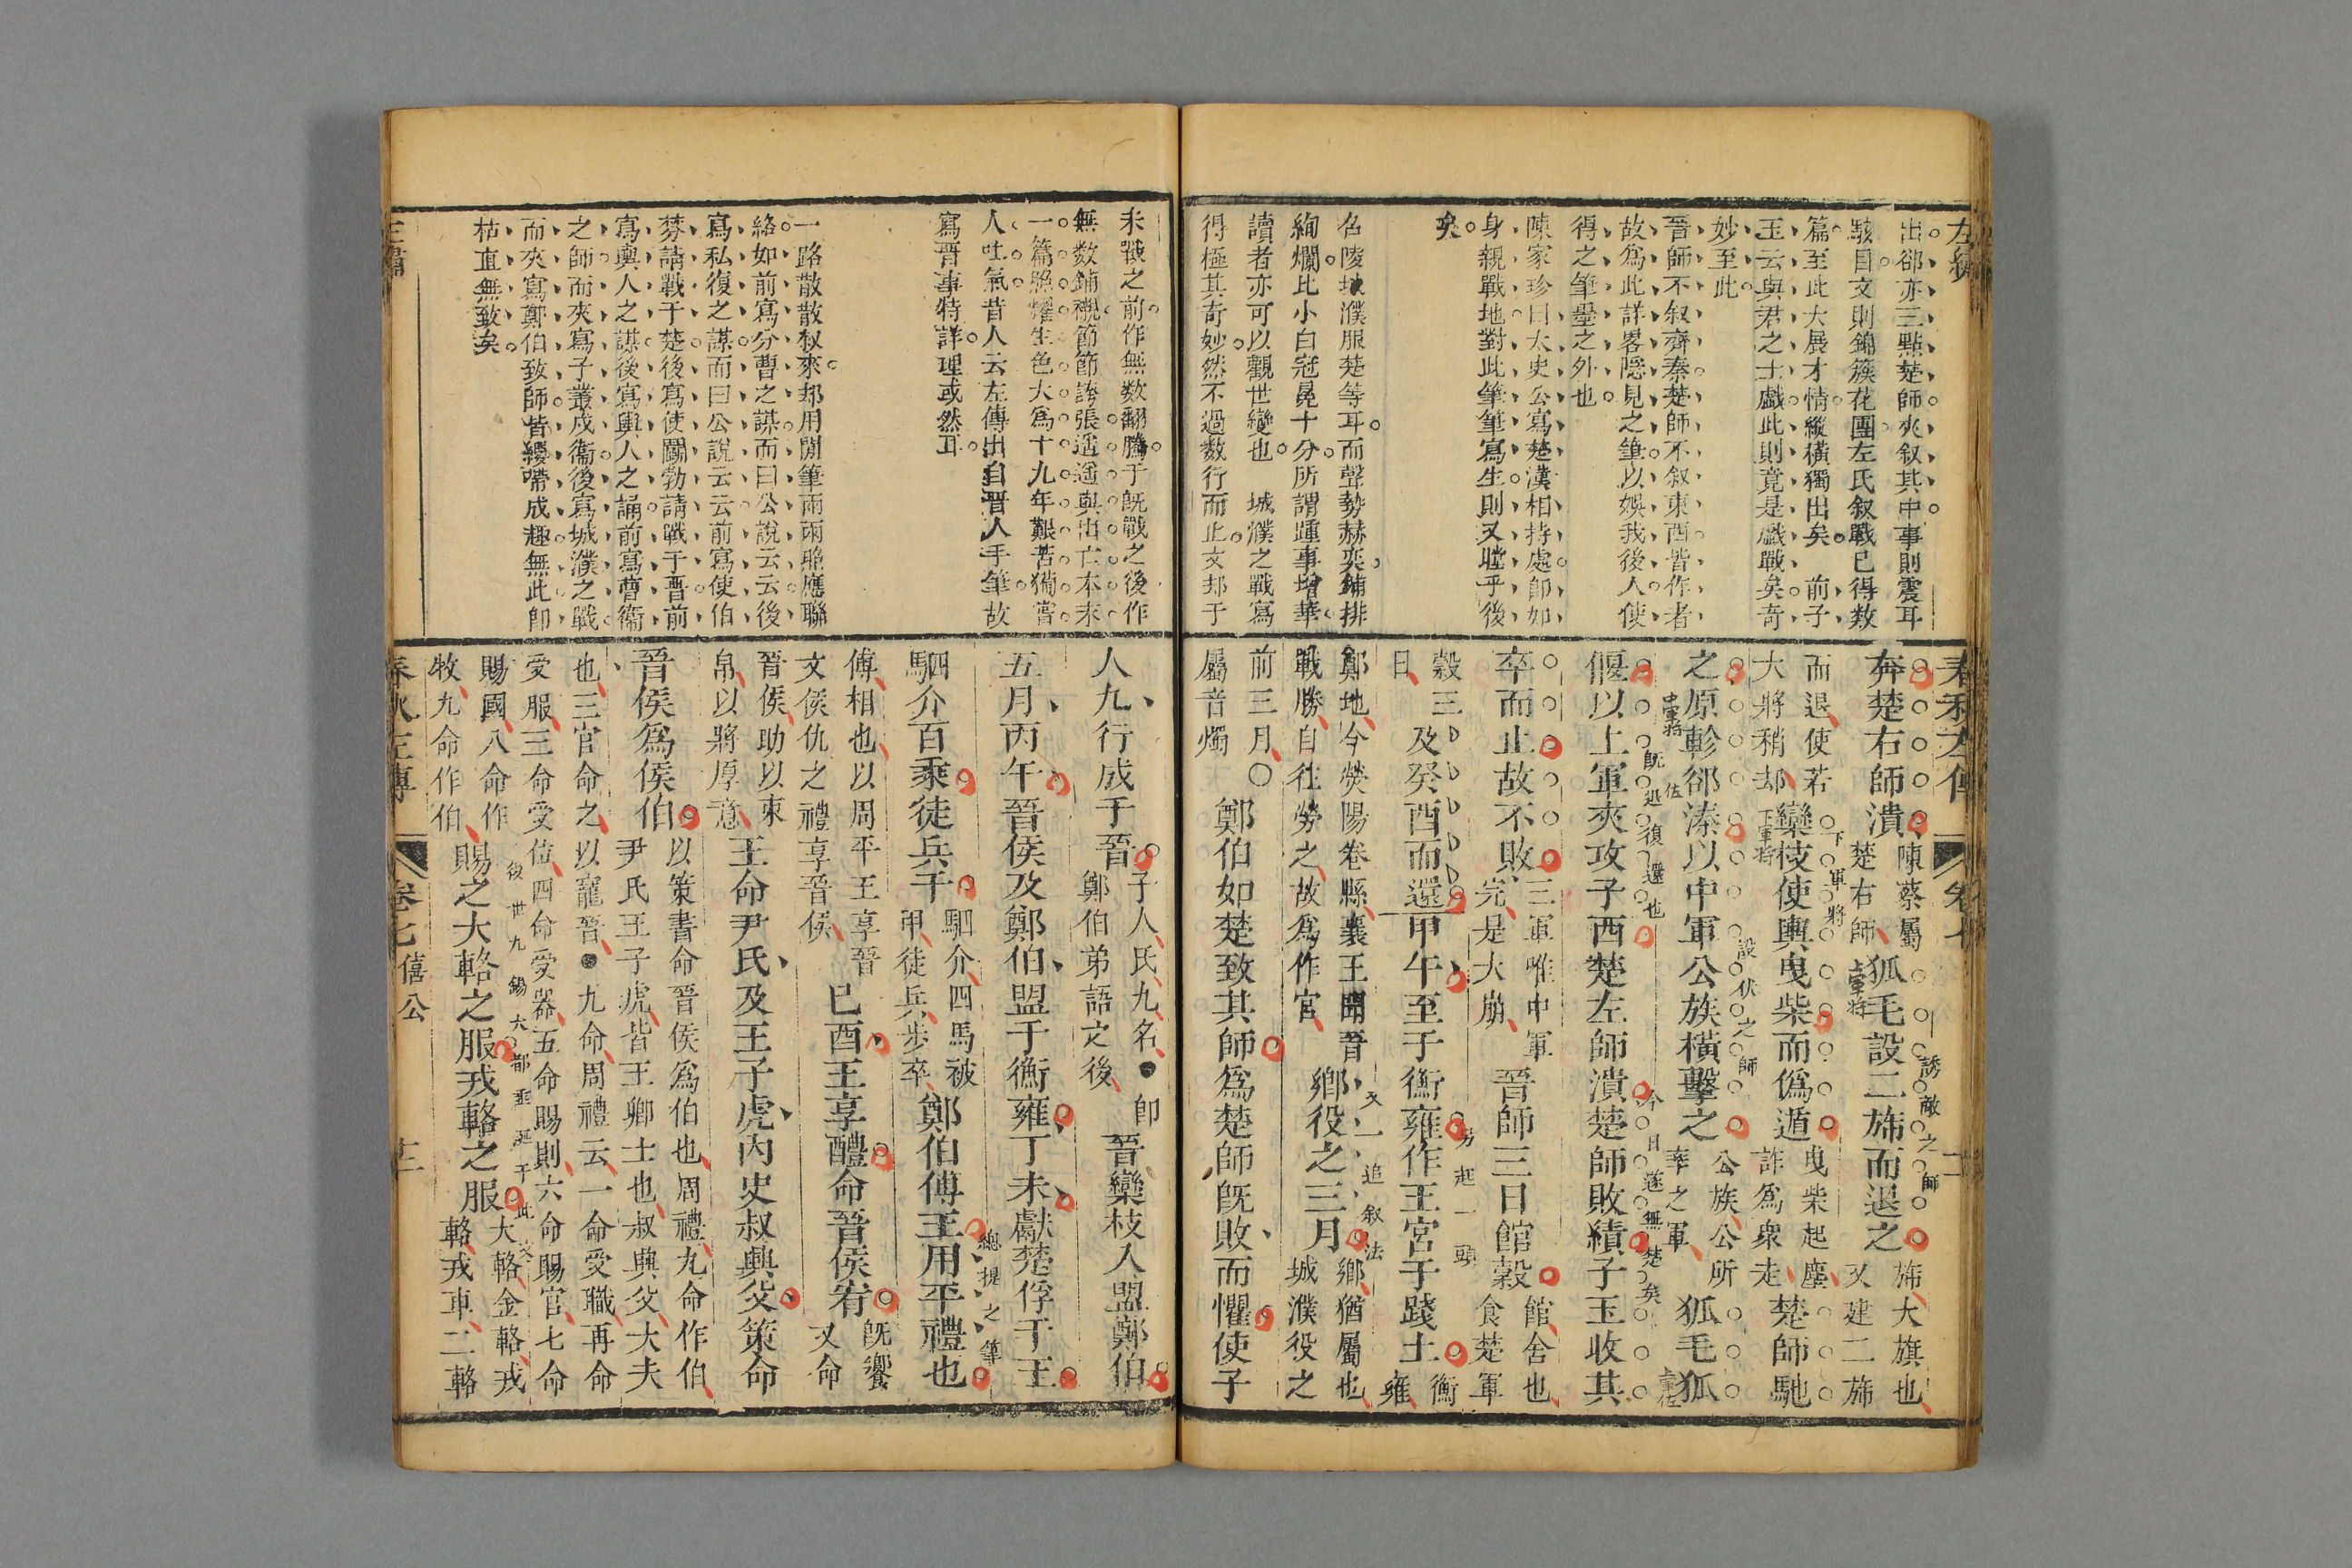 左繡
出郤亦三點楚師夾叙其中事則震耳
駭目文則錦簇花團左氏叙戰已得数
篇至此大展才情縱橫獨出矣 前子
玉云與君之士戲此則竟是戲戰矣奇
妙至此
晉師不叙齊秦楚師不叙東西皆作者
故爲此詳畧隠見之筆以娛我後人使
得之筆墨之外也
陳家珍曰太史公寫楚漢相持處卽如
身親戰地對此筆筆寫生則又瞠乎後
矣
召陵城濮服楚等耳而聲勢赫奕鋪排
絢爛比小白冠冕十分所謂踵事增華
讀者亦可以觀世變也 城濮之戰寫
得極其奇妙然不過数行而止文却于
春秋左傳 卷七 十二
奔楚右師潰陳蔡屬楚右師狐毛設二斾而退之斾大旗也又建二斾
上軍將
誘敵之師
而退使若大將稍却欒枝使輿曳柴而僞遁曳柴起塵詐爲衆走楚師馳
下軍將
下軍將
之原軫郤溱以中軍公族橫擊之公族公所率之軍狐毛狐
中軍將
佐
設伏之師
上軍佐
偃以上軍夾攻子西楚左師潰楚師敗績子玉收其
旣退復還也
今日遂無楚矣
卒而止故不敗三軍唯中軍完是大崩晉師三日館穀館舍也食楚軍
穀三日及癸酉而還甲午至于衡雍作王宮于踐土衡雍
另起一頭
鄭地今熒陽卷縣襄王聞晉戰勝自往勞之故爲作宮鄉役之三月鄉猶屬也城濮役之
又一追叙法
前三月○屬音燭鄭伯如楚致其師爲楚師旣敗而懼使子
未戰之前作無数翻騰于旣戰之後作
無数鋪襯節節誇張遥遥與出亡本末
一篇照耀生色大爲十九年艱苦備嘗
人吐氣昔人云左傳出自晉人手筆故
寫晉事特詳理或然耳
一路散散叙來却用閒筆兩兩照應聯
絡如前寫分曹之謀而曰公說云云後
寫私復之謀而曰公說云云前寫使伯
棼請戰于楚後寫使鬬勃請戰于晉前
寫輿人之謀後寫輿人之誦前寫曹衞
之師而夾寫子叢戍衞後寫城濮之戰
而夾寫鄭伯致師皆縈帶成趣無此卽
枯直無致矣
人九行成于晉子人氏九名●卽鄭伯弟語之後晉欒枝入盟鄭伯
五月丙午晉侯及鄭伯盟于衡雍丁未獻楚俘于王
駟介百乘徒兵千駟介四馬被甲徒兵步卒鄭伯傅王用平禮也
總提之筆
傅相也以周平王享晉文侯仇之禮享晉侯已酉王享醴命晉侯宥旣饗又命
晉侯助以束帛以將厚意王命尹氏及王子虎內史叔興父策命
晉侯爲侯伯以策書命晉侯爲伯也周禮九命作伯尹氏王子虎皆王卿士也叔興父大夫
也三官命之以寵晉●九命周禮云一命受職再命受服三命受位四命受器五命賜則六命賜官七命
賜國八命作牧九命作伯賜之大輅之服戎輅之服大輅金輅戎輅戎車二輅
春秋左傳 卷七 僖公 十二